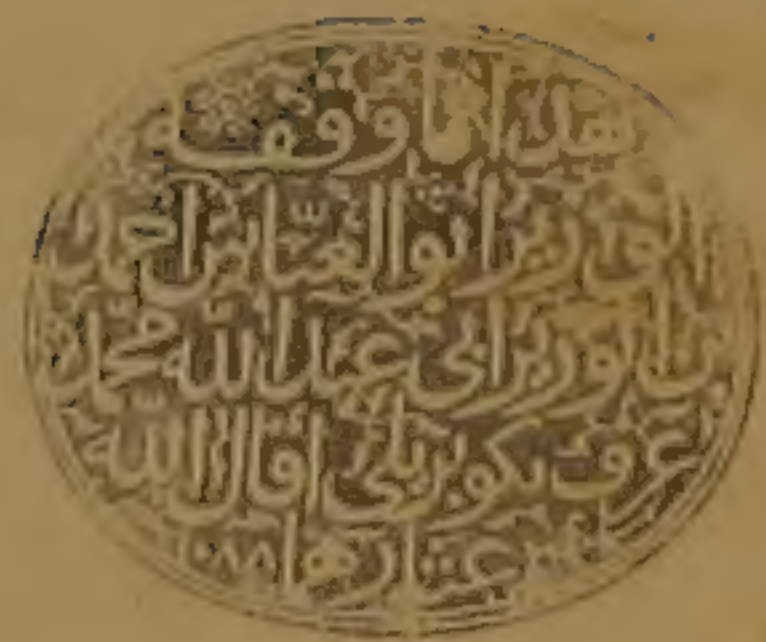 هذا ما وقفه
الوزير أبو العبّاس أحمد
بن الوزير أبي عبد الله محمّد
عرف بكوبريلي أقال الله
عثارهما ١٠٨٨